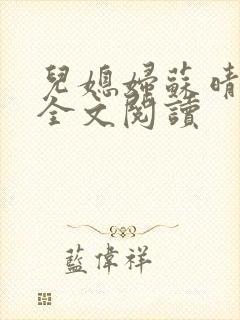 兒媳婦蘇晴
全文閱讀
藍偉祥